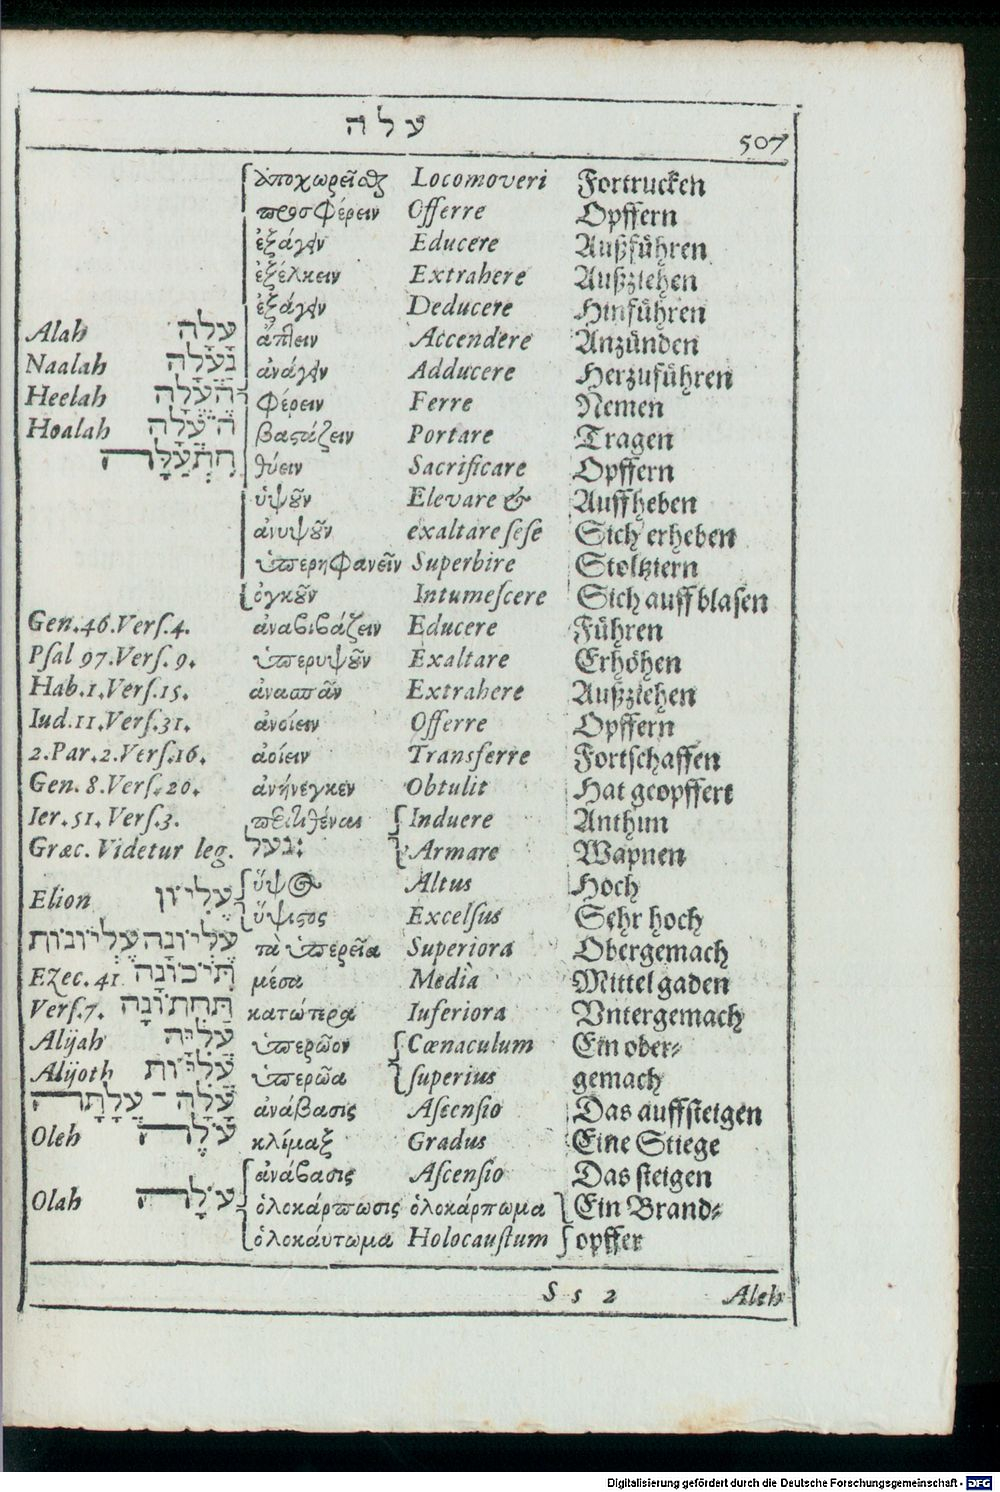 עלה
507
ἀποχωρεῖσθαι Locomoveri Fortrucken
προσφέρειν Offerre Opffern
ἐξάγειν Educere Außführen
ἐξέλκειν Extrahere Außziehen
ἐξάγειν Deducere Hinführen
Alah עָלָה ἅπτειν Accendere Anzünden
Naalah נַעֲלָה ἀνάγειν Adducere Herzuführen
Heelah הֶעֱלָה φέρειν Ferre Nemen
Hoalah הֹעֲלָה βαστάζειν Portare Tragen
הִתְעַלָּה θύειν Sacrificare Opffern
ὑψοῦν Elevare & Auffheben
ἀνυψοῦν exaltare ſeſe Sich erheben
ὑπερηφανεῖν Superbire Stoltziern
ὀγκοῦν Intumeſcere Sich auffblasen
Gen.46.Verſ.4. ἀναβιβάζειν Educere Führen
Pſal 97.Verſ.9. ὑπερυψοῦν Exaltare Erhöhen
Hab.1.Verſ.15. ἀνασπᾶν Extrahere Außziehen
Iud.11.Verſ.31. ἀνοίειν Offerre Opffern
2.Par.2.Verſ.16. ἀοίειν Transferre Fortschaffen
Gen.8.Verſ.20. ἀνήνεγκεν Obtulit Hat geopffert
Ier.51.Verſ.3. περιτιθέναι Induere Anthun
Græc. Videtur leg. נעל׃ Armare Wapnen
Elion עֶלְיוֹן ὕψος Altus Hoch
ὕψιστος Excelſus Sehr hoch
עֶלְיוֹנָה עֶלְיוֹנוֹת τὰ ὑπερεῖα Superiora Obergemach
Ezec.41 תִּיכוֹנָה μέσα Media Mittel gaden
Verſ.7. תַּחְתּוֹנָה κατώτερα Iuferiora Vntergemach
Alijah עֲלִיָּה ὑπερῶον Cœnaculum Ein ober-
Alijoth עֲלִיּוֹת ὑπερῶα ſuperius gemach
ἀνάβασις Aſcenſio Das auffsteigen
Oleh עֹלֶה κλίμαξ Gradus Eine Stiege
ἀνάβασις Aſcenſio Das steigen
Olah עֹלָה ὁλοκάρπωσις ὁλοκάρπωμα Ein Brand-
ὁλοκάυτωμα Holocauſtum opffer
S s 2 Aleh
Digitalisierung gefördert durch die Deutsche Forschungsgemeinschaft - DFG